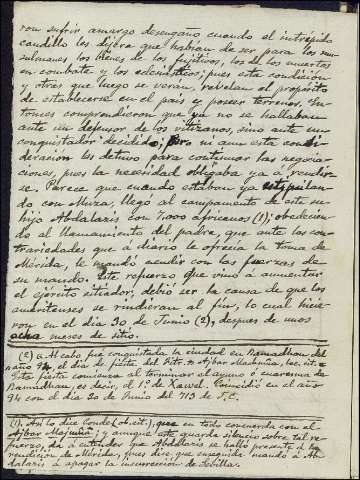 ron sufrir amargo desengaño cuando el intrépido
caudillo les dijera que habían de ser para los mu-
sulmanes los bienes de los fugitivos, los de los muertos
en combate y los eclesiásticos; pues esta condición
y otras que luego se verán, revelan el propósito
de establecerse en el país y poseer terrenos. En-
tonces comprendieron que ya no se hallaban
ante un defensor de los vitizanos, sino ante un
conquistador decidido; pero ni aun esta consi-
deración les detuvo para continuar las negocia-
ciones, pues la necesidad obligaba ya á rendir-
se. Parece que cuando estaban ya estipulan-
do con Muza, llegó al campamento de este su
hijo Abdalaziz con 7.000 africanos (1); obedecien-
do al llamamiento del padre, que ante las con-
trariedades que á diario le ofrecía la toma de
Mérida, le mandó acudir con las fuerzas de
su mando. Este refuerzo que vino á aumentar
el ejército sitiador, debió ser la causa de que los
emeritenses se rindieran al fin, lo cual hicie-
ron en el día 30 de Junio (2), después de unos
ocho meses de sitio.
(2) Al cabo fué conquistada la ciudad en Ramadhan del
año 94, el día de fiesta del Fitr. Ajbar Machmuâ, loc. cit.
Esta fiesta comienza al terminar el ayuno ó cuaresma de
Ramadhan, es decir, el 1º de Xawel. Coincidió en el año
94 con el día 30 de Junio del 713 de J.C.
(1). Así lo dice Conde (ob. cit.), que en todo concuerda con el
Ajbar Machmuâ; y aunque este guarda silencio sobre tal re-
fuerzo, da á entender que Abdalaziz se halló presente á la
rendición de Mérida, pues dice que enseguida mandó á Ab-
dalaziz á apagar la insurreccion de Sevilla.